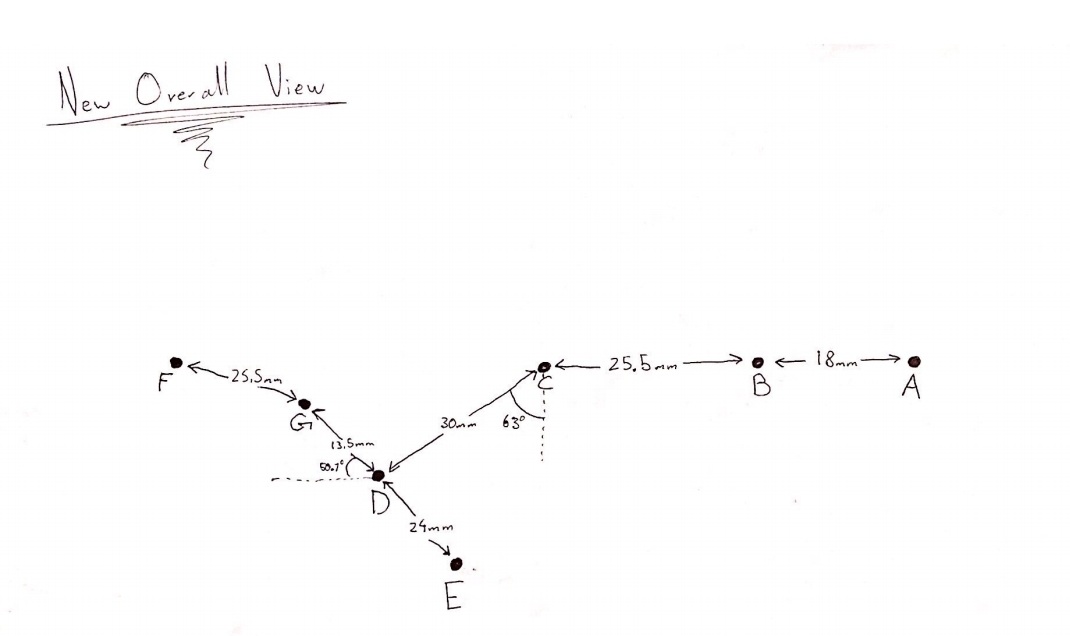 New Overall View
F
25.5mm
G
13.5mm
50.7°
D
24mm
E
30mm
63°
C
25.5mm
B
18mm
A